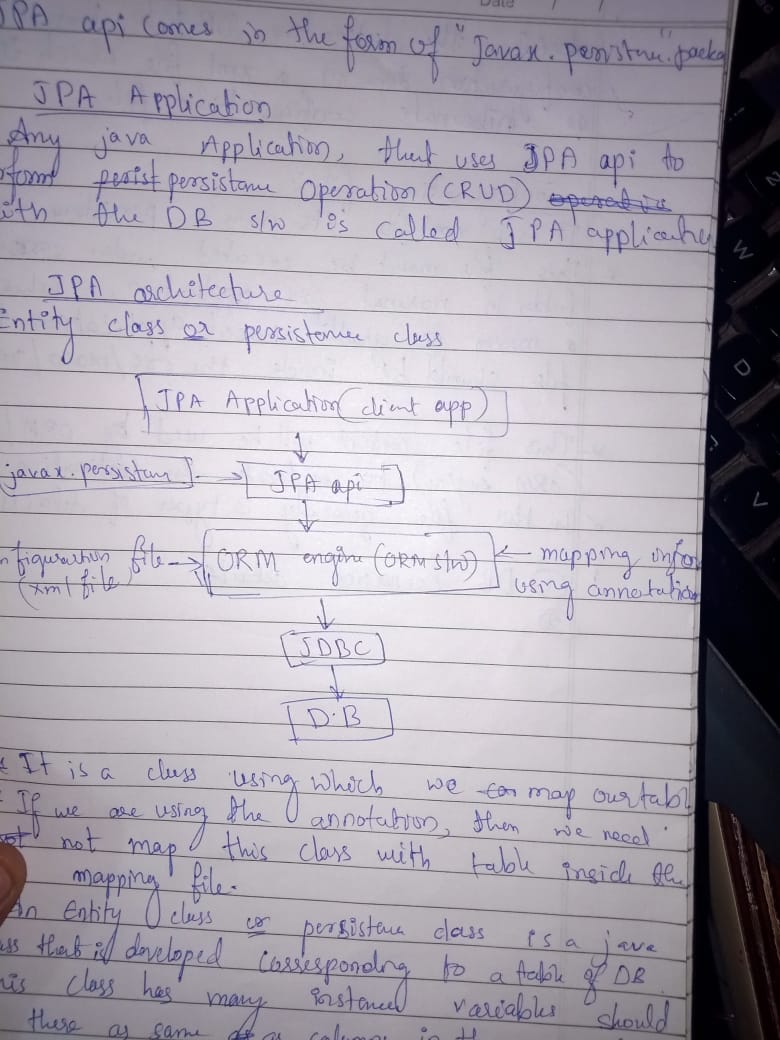 Date / /
JPA api comes in the form of "Javax.persistence.packa
JPA Application
Any java Application, that uses JPA api to
form persist persistance Operation (CRUD) operatio
with the DB s/w is called JPA applicatio
JPA architecture
Entity class or persistence class
JPA Application (client app)
javax.persistan → JPA api
nfiguration file → ORM engine (ORM s/w) ← mapping infor
(xml file using annotation
JDBC
D.B
* It is a class using which we can map our tabl
* If we are using the annotation, then we need
not map this class with table inside the
mapping file.
An Entity class or persistence class is a java
ass that is developed corresponding to a table of DB
his class has many instance variables should
there as same as columns in th